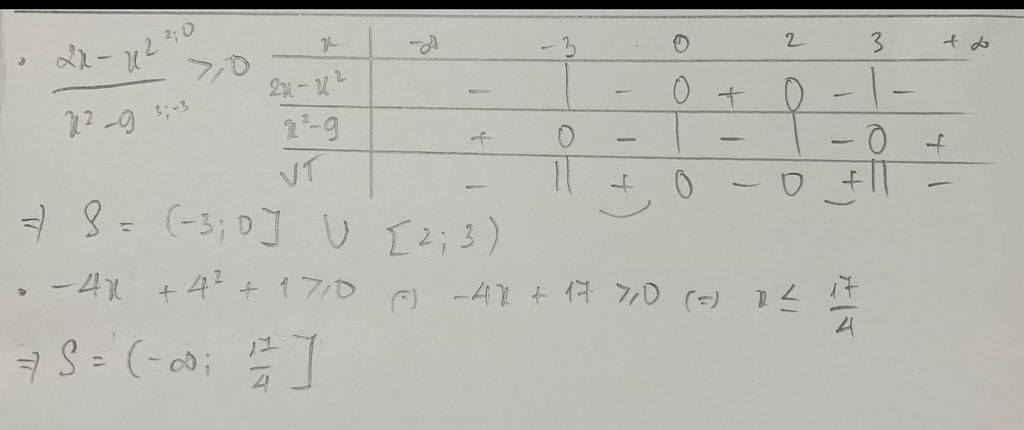 • (2x - x²)/(x² - 9) ≥ 0
2;0
3;-3
x | -∞ -3 0 2 3 +∞
2x - x² | - | - 0 + 0 - | -
x² - 9 | + 0 - | - | - 0 +
VT | - || + 0 - 0 + || -
⇒ S = (-3; 0] ∪ [2; 3)
• -4x + 4² + 1 ≥ 0 (=) -4x + 17 ≥ 0 (=) x ≤ 17/4
⇒ S = (-∞; 17/4]